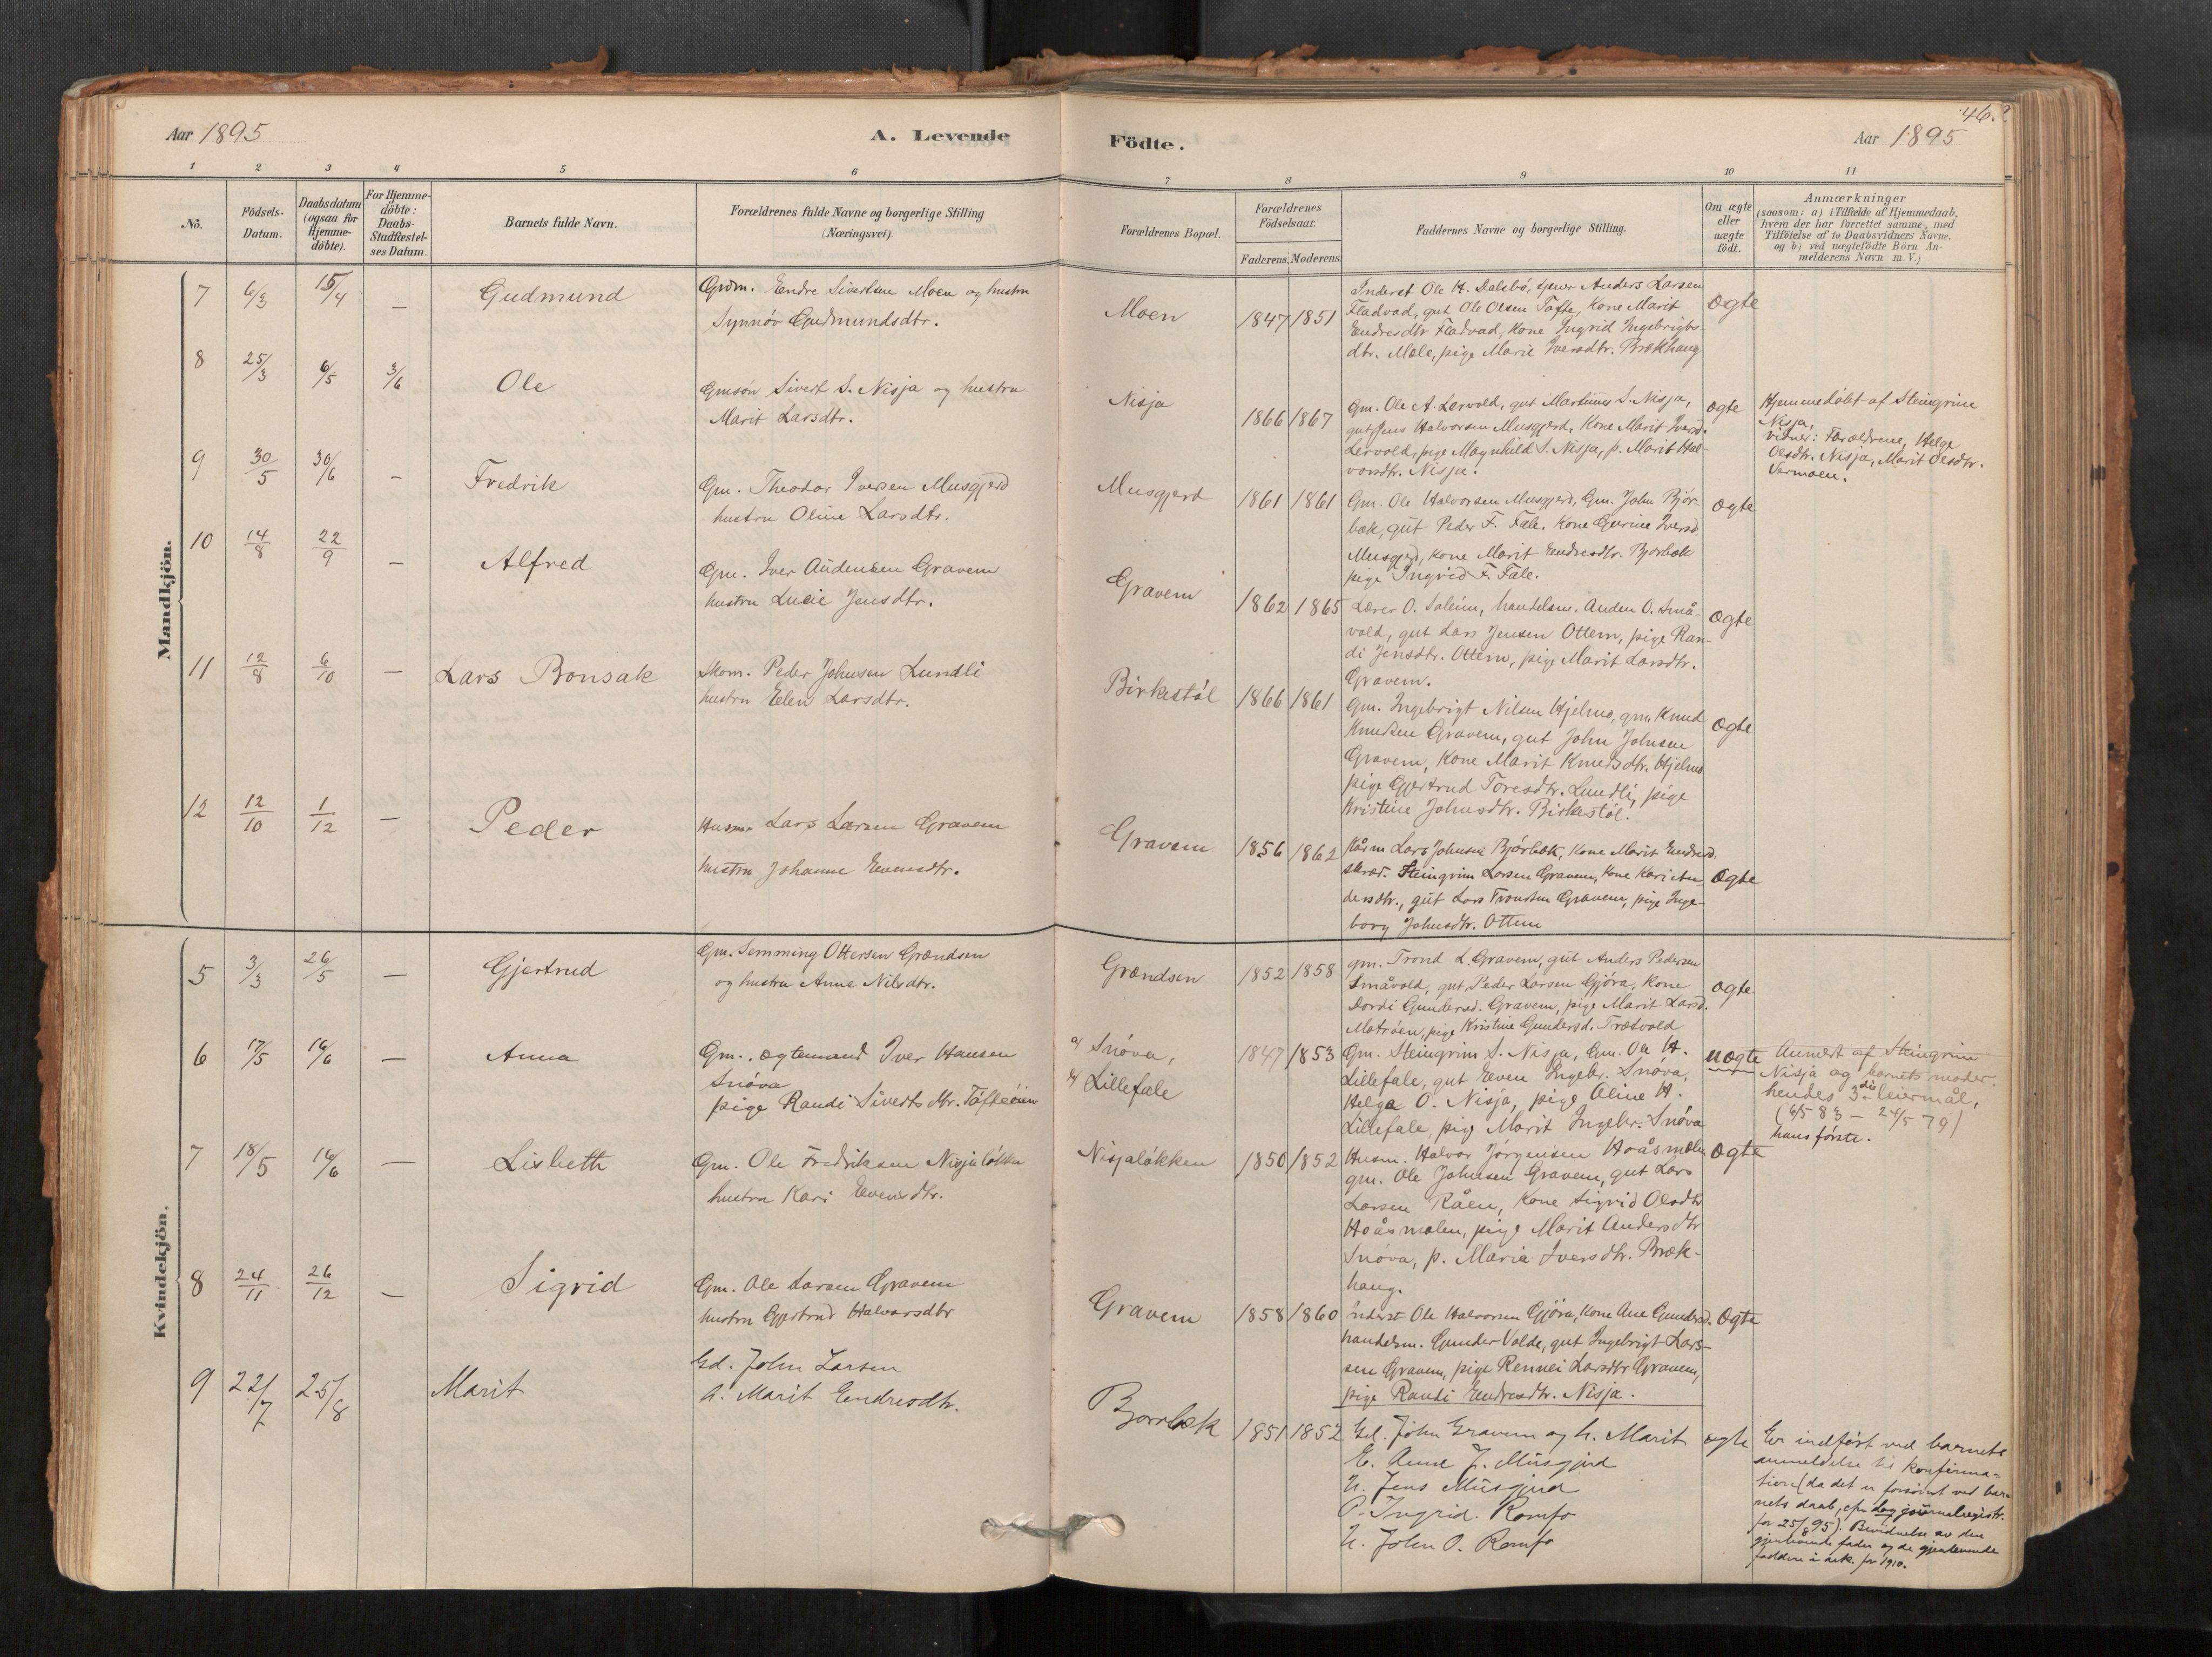 46.
Aar 1895
A. Levende
Födte.
Aar 1895
1 2 3 4 5 6 7 8 9 10 11
No.
Födsels-
Datum.
Daabsdatum
(ogsaa for
Hjemme-
döbte).
For Hjemme-
döbte:
Daabs-
Stadfæstel-
ses Datum.
Barnets fulde Navn.
Forældrenes fulde Navne og borgerlige Stilling
(Næringsvei).
Forældrenes Bopæl.
Forældrenes
Födselsaar.
Faderens. Moderens.
Faddernes Navne og borgerlige Stilling.
Om ægte
eller
uægte
födt.
Anmærkninger
(saasom: a) i Tilfælde af Hjemmedaab,
hvem der har forrettet samme, med
Tilföielse af to Daabsvidners Navne,
og b) ved uægtefödte Börn An-
melderens Navn m. V.)
Mandkjön.
7 6/3 15/4 — Gudmund
Grdm. Endre Sivertsen Moen og hustru
Synnöv Gudmundsdtr.
Moen 1847 1851
Inderst Ole H. Dalsbö, tjener Anders Larsen
Fladvad, gut Ole Olsen Tofte, Kone Marit
Endresdtr Fladvad, Kone Ingrid Ingebrigts-
dtr. Mæle, pige Marie Iversdtr. Brækhaug
ægte
8 25/3 6/5 3/6 Ole
Gmsön Sivert S. Nisja og hustru
Marit Larsdtr.
Nisja 1866 1867
Gm. Ole A. Lervold, gut Martinus S. Nisja,
gut Jens Halvorsen Musgjerd, Kone Marit Iversd.
Lervold, pige Magnhild S. Nisja, p. Marit Hal-
vorsdtr. Nisja.
ægte
Hjemmedöbt af Steingrim
Nisja,
vidner: Forældrene, Helge
Olsdtr. Nisja, Marit Olsdtr.
Vermoen.
9 30/5 30/6 — Fredrik
Gm. Theodor Iversen Musgjerd
hustru Oline Larsdtr.
Musgjerd 1861 1861
Gm. Ole Halvorsen Musgjerd, Gm. John Björ-
bæk, gut Peder F. Fale, Kone Gurine Iversd.
Musgjerd, Kone Marit Endresdtr. Bjorbæk
pige Ingrid F. Fale.
ægte
10 14/8 22/9 — Alfred
Gm. Iver Audensen Gravem
hustru Lucie Jensdtr.
Gravem 1862 1865
Lærer O. Saleim, handelsm. Auden O. Små-
vold, gut Lars Jensen Ottem, pige Ran-
di Jensdtr. Ottem, pige Marit Larsdtr.
Gravem.
ægte
11 12/8 6/10 — Lars Bonsak
Skom. Peder Johnsen Lundli
hustru Elen Larsdtr.
Birkestöl 1866 1861
Gm. Ingebrigt Nilsen Hjelmo, gm. Knud
Knudsen Gravem, gut John Johnsen
Gravem, Kone Marit Knudsdtr. Hjelmo
pige Gjertrud Toresdtr. Lundli, pige
Kristine Johnsdtr. Birkestöl.
ægte
12 12/10 1/12 — Peder
Husm. Lars Larsen Gravem
hustru Johanne Evensdtr.
Gravem 1856 1862
Lars Johnsen Bjørbæk, Kone Marit Endresd.
skræd. Steingrim Larsen Gravem, Kone Kari An
dersdtr., gut Lars Trondsen Gravem, pige Inge-
borg Johnsdtr. Ottem
ægte
Kvindekjön.
5 3/3 26/5 — Gjertrud
Gm. Semming Ottersen Grændsen
og hustru Anne Nilsdtr.
Grændsen 1852 1858
gm. Trond L. Gravem, gut Anders Pedersen
Småvold, gut Peder Larsen Gjöra, Kone
Dordi Gundersd. Gravem, pige Marit Larsd.
Motröen, pige Kristine Gundersd. Trædvold
ægte
6 17/5 16/6 — Anna
Gm., ægtemand Iver Hansen
Snöva
pige Randi Sivertsdtr. Tofteöien
a/ Snöva,
b/ Lillefale
1847 1853
Gm. Steingrim S. Nisja, Gm. Ole H.
Lillefale, gut Even Ingebr. Snöva,
Helga O. Nisja, pige Oline H.
Lillefale, pig Marit Ingebr. Snöva
uægte
Anmeldt af Steingrim
Nisja og barnets moder.
hendes 3die leiermål,
(6/5 83 — 24/5 79)
hans förste.
7 18/5 16/6 — Lisbeth
Gm. Ole Fredriksen Nisjalökken
hustru Kari Evensdtr.
Nisjalökken 1850 1852
Husm. Halvor Jörgensen Hoåsmælen
gm. Ole Johnsen Gravem, gut Lars
Larsen Råen, Kone Sigrid Olsdtr
Hoåsmælen, pige Marit Andersdtr
Snöva, p. Maria Iversdtr. Bræk-
haug.
ægte
8 24/11 26/12 — Sigrid
Gm. Ole Larsen Gravem
hustru Gjertrud Halvorsdtr
Gravem 1858 1860
Inderst Ole Halvorsen Gjöra, Kone Ane Gundersd.
handelsm. Gunder Volde, gut Ingebrigt Lars-
sen Gravem, pige Rennei Larsdtr Gravem,
pige Randi Endresdtr. Nisja.
ægte
9 22/7 25/8 Marit
Gd. John Larsen
o. Marit Endresdtr.
Bjørbæk 1851 1852
Gd. John Gravem og h. Marit
E. Anne J. Musgjerd
U. Jens Musgjerd
P. Ingrid Romfo
U. John O. Romfo
ægte
Er indført ved barnets
anmeldelse til konfirma-
tion (da det er forsömt ved bar-
nets daab, cfr. dagjournalregistr.
for 25/8 95). Bevidnelse av den
gjenlevende fader og de gjenlevende
faddere i ark. for 1910.